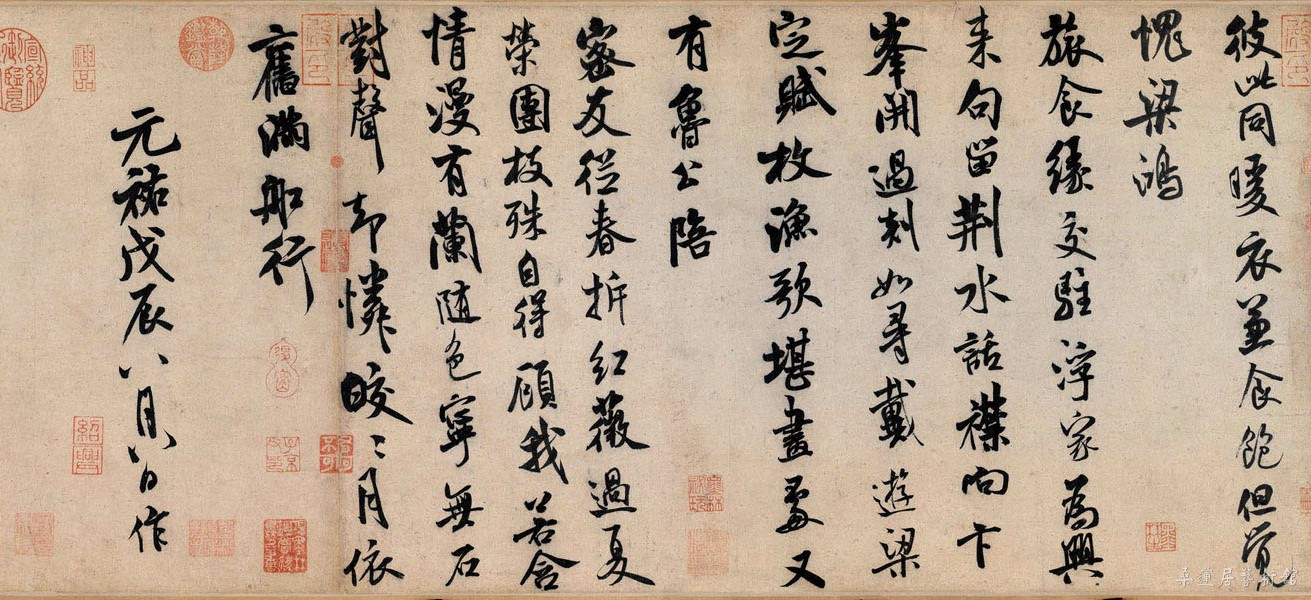 彼此同暖衣兼食飽但覺
愧梁鴻
旅食緣交駐浮家為興
來句留荊水話襟向卞
峯開過剡如尋戴遊梁
定賦枚漁歌堪畫處又
有魯公陪
密友從春拆紅薇過夏
榮團枝殊自得顧我若含
情漫有蘭隨色寧無石
對聲却憐皎〻月依
舊滿船行
元祐戊辰八月八日作
神品
紹興
桑蓮居藝術館